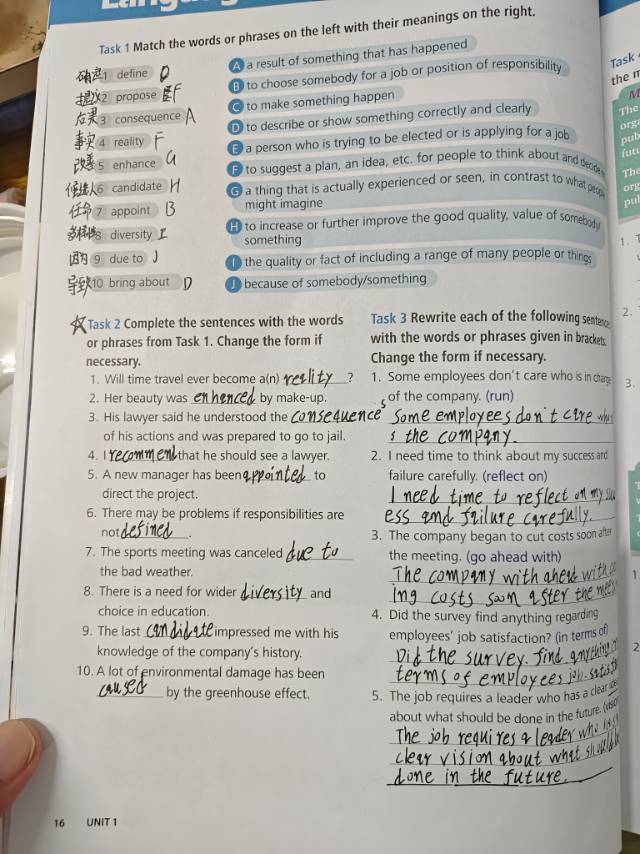 Task 1 Match the words or phrases on the left with their meanings on the right.
确定 1 define D
提议 2 propose F
后果 3 consequence A
事实 4 reality F
改善 5 enhance G
候选人 6 candidate H
任命 7 appoint B
多样性 8 diversity I
因为 9 due to J
导致 10 bring about D
A a result of something that has happened
B to choose somebody for a job or position of responsibility
C to make something happen
D to describe or show something correctly and clearly
E a person who is trying to be elected or is applying for a job
F to suggest a plan, an idea, etc. for people to think about and decide
G a thing that is actually experienced or seen, in contrast to what people
might imagine
H to increase or further improve the good quality, value of somebody/
something
I the quality or fact of including a range of many people or things
J because of somebody/something
Task 2 Complete the sentences with the words
or phrases from Task 1. Change the form if
necessary.
1. Will time travel ever become a(n) reality ?
2. Her beauty was enhanced by make-up.
3. His lawyer said he understood the consequences
of his actions and was prepared to go to jail.
4. I recomment that he should see a lawyer.
5. A new manager has been appointed to
direct the project.
6. There may be problems if responsibilities are
not defined .
7. The sports meeting was canceled due to
the bad weather.
8. There is a need for wider diversity and
choice in education.
9. The last candidate impressed me with his
knowledge of the company's history.
10. A lot of environmental damage has been
caused by the greenhouse effect.
Task 3 Rewrite each of the following sentences
with the words or phrases given in brackets.
Change the form if necessary.
1. Some employees don't care who is in charge
of the company. (run)
Some employees don't care who
s the company.
2. I need time to think about my success and
failure carefully. (reflect on)
I need time to reflect on my succ
ess and failure carefully.
3. The company began to cut costs soon after
the meeting. (go ahead with)
The company with ahead with
ing costs soon after the
4. Did the survey find anything regarding
employees' job satisfaction? (in terms of)
Did the survey. find anything
terms of employees job.
5. The job requires a leader who has a clear idea
about what should be done in the future. (vision)
The job requires a leader who has
clear vision about what should
done in the future.
16 UNIT 1
Task
the
The
org
pub
futu
The
org
pub
1.
2.
3.
1
2